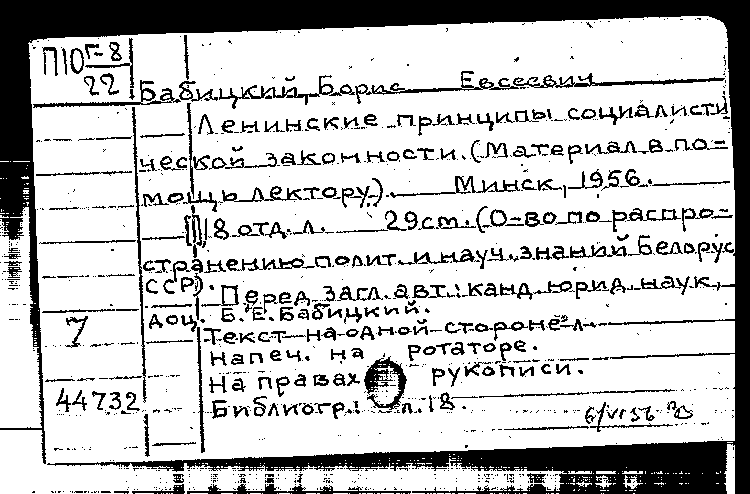 П10 Г-8
22
Бабицкий, Борис Евсеевич
Ленинские принципы социалисти
ческой законности. (Материал в по-
мощь лектору). Минск, 1956.
18 отд. л. 29см. (О-во по распро-
странению полит. и науч. знаний Белорус
ССР).
Перед загл. авт.: канд. юрид. наук,
доц. Б. Е. Бабицкий.
7
Текст на одной стороне л.
напеч. на ротаторе.
На правах рукописи.
44732
Библиогр.: л. 18.
6/VI 56